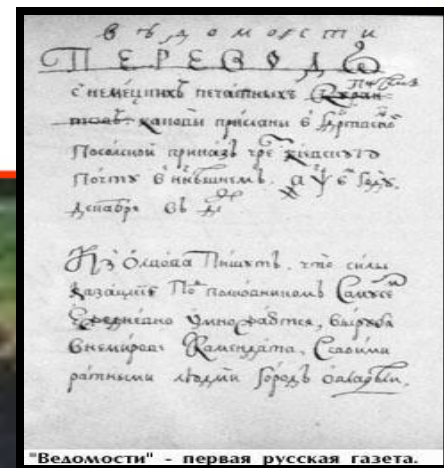 вѣдомости
ПЕРЕВОДЪ
с немецкихъ печатныхъ куран-
товъ. каковы присланы в
Посолской приказъ чрез киевскую
почту в нынѣшнемъ. Году.
декабря въ
Из Олвова Пишутъ. что силы
казацкие По полковникомъ Самусе
Ежедневно умножаются, вырубя
Внемирове Каменданта, Своими
ратными людми Городъ овладѣли.
"Ведомости" - первая русская газета.